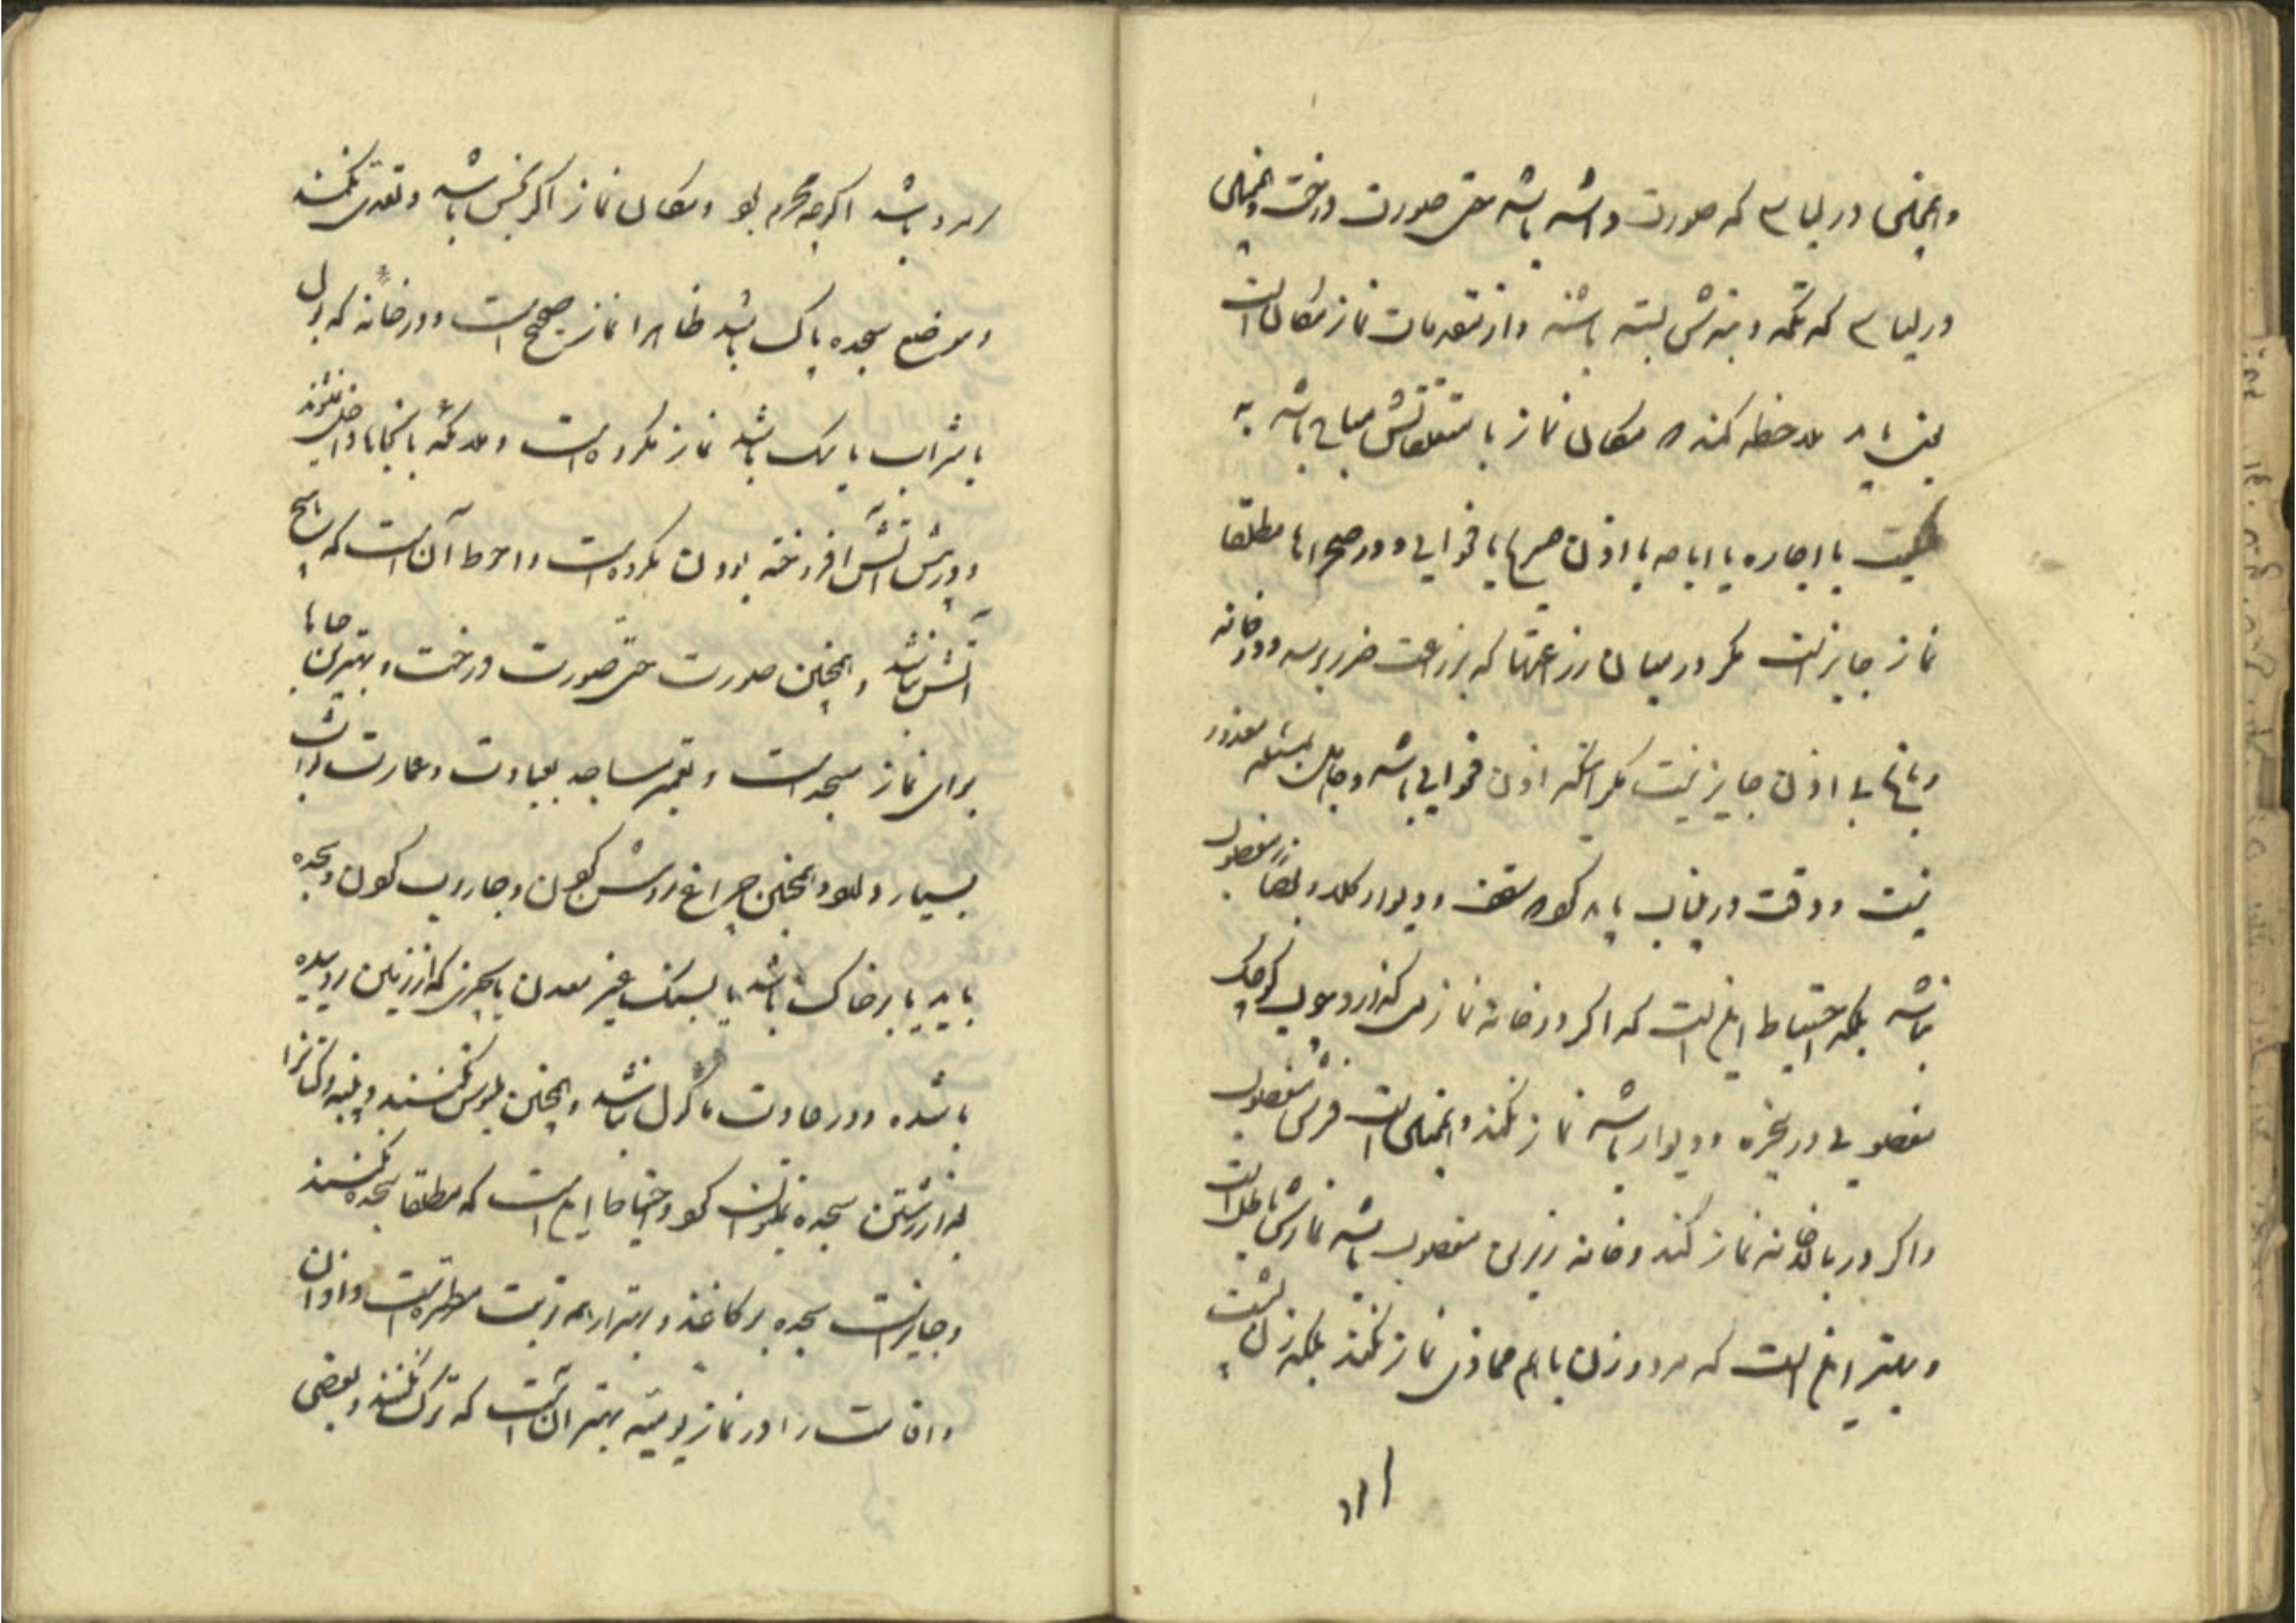 و همچنین در لباسی که صورت داشته باشد حتی صورت درخت و همچنین
در لباسی که تکمه و بندش بسته باشد و از مقدمات نماز مکان است
یعنی باید ملاحظه کند که مکان نماز با متعلقاتش مباح باشد به
ملکیت یا اجاره یا اباحه یا اذن صریح یا فحوایی و در صحراها مطلقا
نماز جایز است مگر در میان زراعتها که بزراعت ضرر برسد و در خانه
و باغ بی اذن جایز نیست مگر آنکه اذن فحوایی باشد و جاهل بمسئله معذور
نیست و دقت در این باب باید کرد که سقف و دیوار کلا و بعضا مغصوب
نباشد بلکه احتیاط این است که اگر در خانه نماز می گذارد و چوب کوچک
مغصوبی در پنجره و دیوار باشد نماز نکند و همچنین است فرش مغصوب
و اگر در بالاخانه نماز کند و خانه زیرین مغصوب باشد نمازش باطل است
و بهتر این است که مرد و زن با هم محاذی نماز نکنند بلکه زن پشت
سر مرد باشد اگرچه محرم بود و مکان نماز اگر نجس باشد و تعدی نکند
و موضع سجده پاک باشد ظاهرا نماز صحیح است و در خانه که بول
یا شراب یا سگ باشد نماز مکروه است و ملائکه بانجاها داخل نشوند
و در پیش آتش افروخته بودن مکروه است و احوط آن است که هیچ
آتش نباشد و همچنین صورت حتی صورت درخت و بهترین جاها
برای نماز مسجد است و تعمیر مساجد بعبادت و عمارت ثواب
بسیار دارد و همچنین چراغ روشن کردن و جاروب کردن و سجده
باید یا بر خاک باشد یا بسنگ غیر معدن یا چیزی که از زمین روییده
باشد و در عادت ماکول نباشد و همچنین ملبوس نکنند و پنبه و کتان را
بعد از رشتن سجده نمیتوان کرد و احتیاط این است که مطلقا سجده نکنند
و جایز است سجده بر کاغذ و بهتر از همه تربت مطهره است و اذان
و اقامت را در نماز یومیه بهتر آن است که ترک نکنند و بعضی